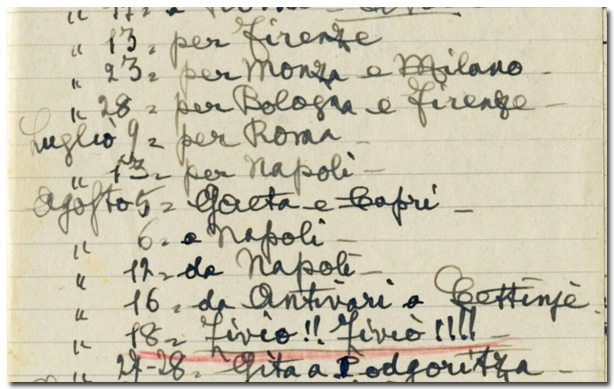 " 13 = per Firenze
" 23 = per Monza e Milano -
" 28 = per Bologna e Firenze -
Luglio 9 = per Roma -
" 13 = per Napoli -
Agosto 5 = Gaeta e Capri -
" 6 = a Napoli -
" 12 = da Napoli -
" 16 = da Antivari a Cettinje
" 18 = Zivio!! Zivio!!!! -
" 27-28 = Gita a Podgoritza -